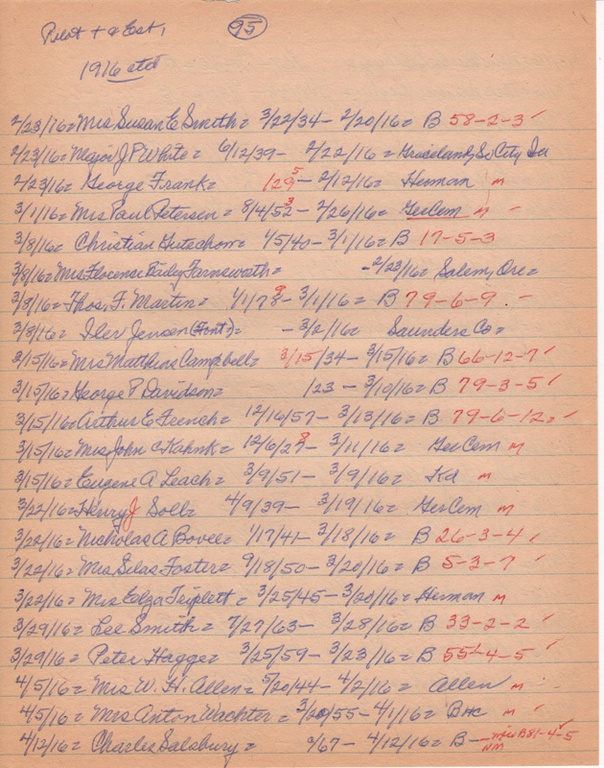 Pilot + & East, 95
1916 std
2/23/16= Mrs Susan E Smith= 3/22/34- 2/20/16= B 58-2-3 ✓
2/23/16= Major J P White= 6/12/39- 2/22/16= Graceland, So City
2/23/16= George Frank= 129 5 - 2/12/16= Herman m
3/1/16= Mrs Paul Petersen= 8/4/52 3 - 2/26/16= GerCem m -
3/8/16= Christian Gutschow= 1/5/40- 3/1/16= B 17-5-3
3/8/16= Mrs Florence Farnsworth= -2/23/16= Salem, Ore=
3/8/16= Thos. F. Martin= 1/1/78 9 - 3/1/16= B 79-6-9. -
3/8/16= Iler Jensen (Font)= -3/2/16= Saunders Co=
3/15/16= Mrs Matthias Campbell= 3/15/34- 3/15/16= B 66-12-7 ✓
3/15/16= George P Davidson= /23- 3/10/16= B 79-3-5 ✓
3/15/16= Arthur E French= 12/16/57- 3/13/16= B 79-6-12= ✓
3/15/16= Mrs John C Kahnk= 12/6/27 8 - 3/11/16= GerCem m
3/15/16= Eugene A Leach= 3/9/51- 3/9/16= Kd m
3/22/16= Henry J Soll= 4/9/39- 3/19/16= GerCem m
3/22/16= Nicholas A Bovee= 1/17/41- 3/18/16= B 26-3-4 ✓
3/22/16= Mrs Silas Foster= 9/18/50- 3/20/16= B 5-3-7 ✓
3/22/16= Mrs Elza Triplett= 3/25/45- 3/20/16= Herman m
3/29/16= Lee Smith= 7/27/63- 3/28/16= B 33-2-2 ✓
3/29/16= Peter Hagge= 3/25/59- 3/23/16= B 55-4-5 ✓
4/5/16= Mrs W. H. Allen= 5/20/44- 4/2/16= Allen m -
4/5/16= Mrs Anton Wachter= 3/20/55- 4/1/16= BHC m ✓
4/12/16= Charles Salsbury= /67- 4/12/16= B- B81-4-5
NM